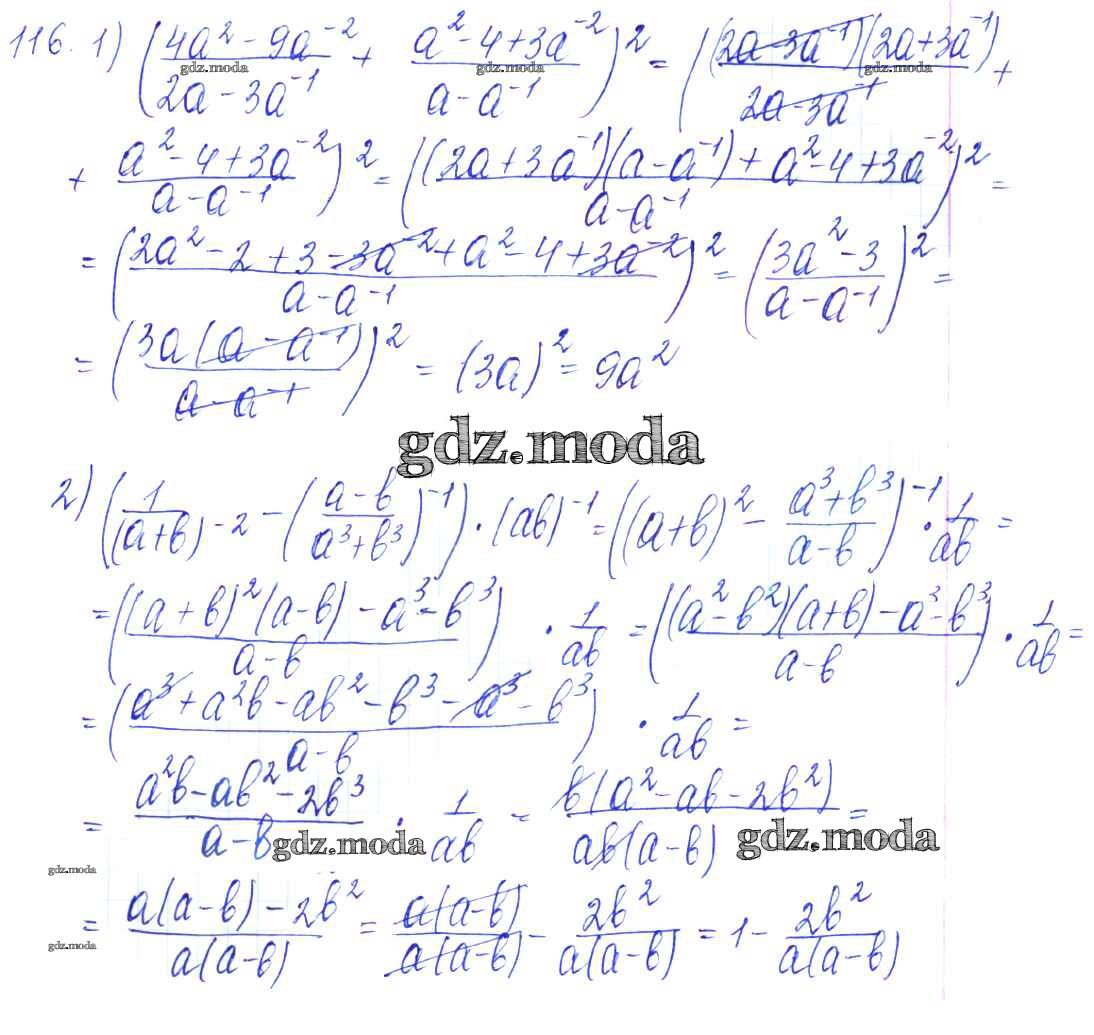 116. 1) ((4a² - 9a⁻²)/(2a - 3a⁻¹) + (a² - 4 + 3a⁻²)/(a - a⁻¹))² = ((2a - 3a⁻¹)(2a + 3a⁻¹)/(2a - 3a⁻¹) +
gdz.moda gdz.moda gdz.moda
+ (a² - 4 + 3a⁻²)/(a - a⁻¹))² = (((2a + 3a⁻¹)(a - a⁻¹) + a² - 4 + 3a⁻²)/(a - a⁻¹))² =
= ((2a² - 2 + 3 - 3a⁻² + a² - 4 + 3a⁻²)/(a - a⁻¹))² = ((3a² - 3)/(a - a⁻¹))² =
= (3a(a - a⁻¹)/(a - a⁻¹))² = (3a)² = 9a²
gdz.moda
2) (1/(a+b)⁻² - ((a-b)/(a³+b³))⁻¹) · (ab)⁻¹ = ((a+b)² - (a³+b³)/(a-b))⁻¹ · 1/ab =
= (((a+b)²(a-b) - a³ - b³)/(a-b)) · 1/ab = (((a² - b²)(a+b) - a³ - b³)/(a-b)) · 1/ab =
= ((a³ + a²b - ab² - b³ - a³ - b³)/(a-b)) · 1/ab =
= (a²b - ab² - 2b³)/(a-b) · 1/ab = b(a² - ab - 2b²)/(ab(a-b)) =
gdz.moda gdz.moda
gdz.moda
= (a(a-b) - 2b²)/(a(a-b)) = a(a-b)/(a(a-b)) - 2b²/(a(a-b)) = 1 - 2b²/(a(a-b))
gdz.moda